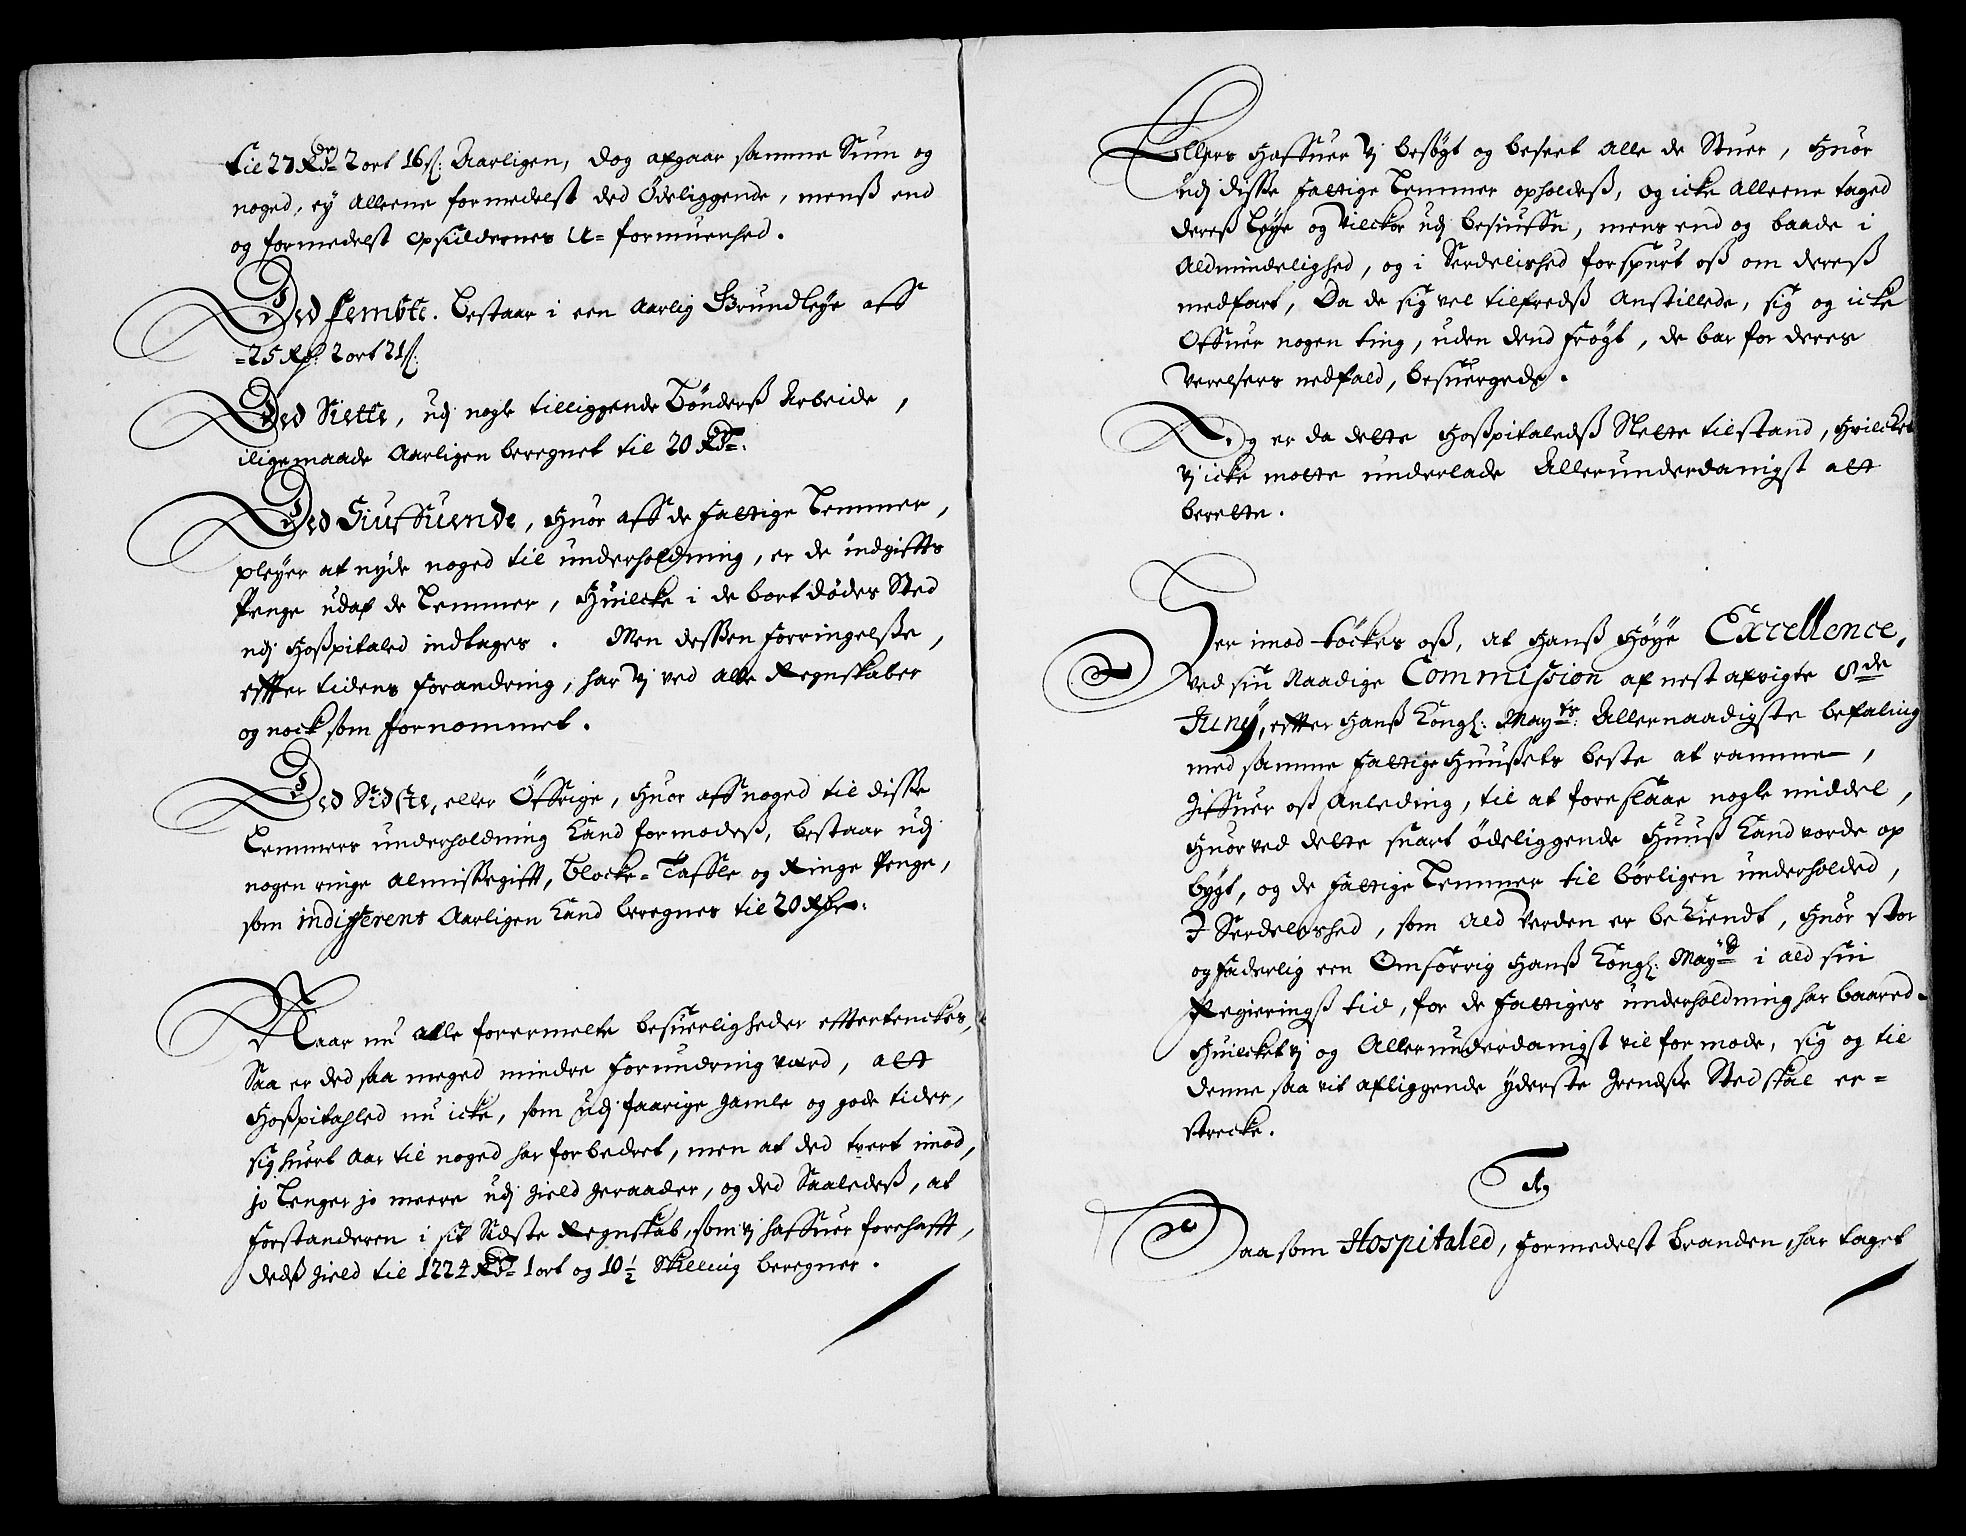 til 27 Rdr 2 ort 16 s: Aarligen, dog afgaar samme Sum og
noged, ey alleene formedelst ded Ødeliggende, menß end
og formedelst opsildernes U= formuenhed.
Ded Fembte. bestaar i een Aarlig Grundleye aff
=25 Rd: 2 ort 21 s:
Ded Siette, udj nogle tilliggende bønderß Arbeide,
iligemaade Aarligen beregnet til 20 Rdr:
Ded Siuffuende, huor aff de fattige Lemmer,
pleyer at nyde noged til underholdning, er de indgiffts
Penge udaf de Lemmer, huilcke i de bortdødes Sted
udj Hoßpitaled indtages. Men dessen forringelsse,
effter tidens forandring, har vj ved alle Regnskaber
og nocksom fornommet.
Ded Sidste, eller Øffrige, huor aff noged til disse
Lemmers underholdning kand formodeß, bestaar udj
nogen ringe almissegifft, Blocke= Taffle og Ringe Penge,
som indifferent Aarligen kand beregnes til 20 Rdr:
Naar nu alle forermelte besuerligheder efftertenckes,
Saa er ded saa meged mindre forundring værd, att
Hoßpitahled nu icke, som udj faarige gamle og gode tider,
sig huert Aar til noged har forbedret, men at ded tvert imod,
jo lenger jo meere udj gield geraader, og ded Saaledeß, at
Forstanderen i sit Sidste Regnskab, som vj haffuer forehafft,
dedß gield til 1224 Rdr 1 ort og 10 1/2 Skilling beregner.
Ellers haffuer vj besøgt og beseet alle de Stuer, huor
udj disse fattige Lemmer opholdeß, og icke alleene taged
dereß Leye og Vilckor udj besiufn, mens end og baade i
Aldmindelighed, og i Serdelished forspurt oß om dereß
medfart, Da de sig vel tilfredß anstillede, sig og icke
Offuer nogen ting, uden dend frøgt, de bar for deres
Verelsers nedfald, besuergede.
Og er da dette Hoßpitaledß Slette tilstand, huilcket
vj icke motte underlade Allerunderdanigst att
berette.
Her imod töckes oß, at hanß Høye Excellence,
ved sin Naadige Commission af nest afvigte 8de
Junij, effter hanß Kongl: Mayts: Allernaadigste befaling
med samme fattige Huußets beste at ramme,
giffuer oß Anleding, til at foreslaae nogle middel,
huorved dette snart ødeliggende Huuß kand vorde op
bygt, og de fattige Lemmer til børligen underholded,
I Serdelished, som ald Verden er bekiendt, huor stor
og faderlig een Omsorrig hanß Kongl: Mayt i ald sin
Regieringß tid, for de fattiges underholdning har baared.
huilcket vj og Allerunderdanigst vil formode, sig og til
denne saa vit afliggende yderste grendsse Sted skal er=
strecke.
Og
Saasom Hospitaled, formedelst branden, har taget